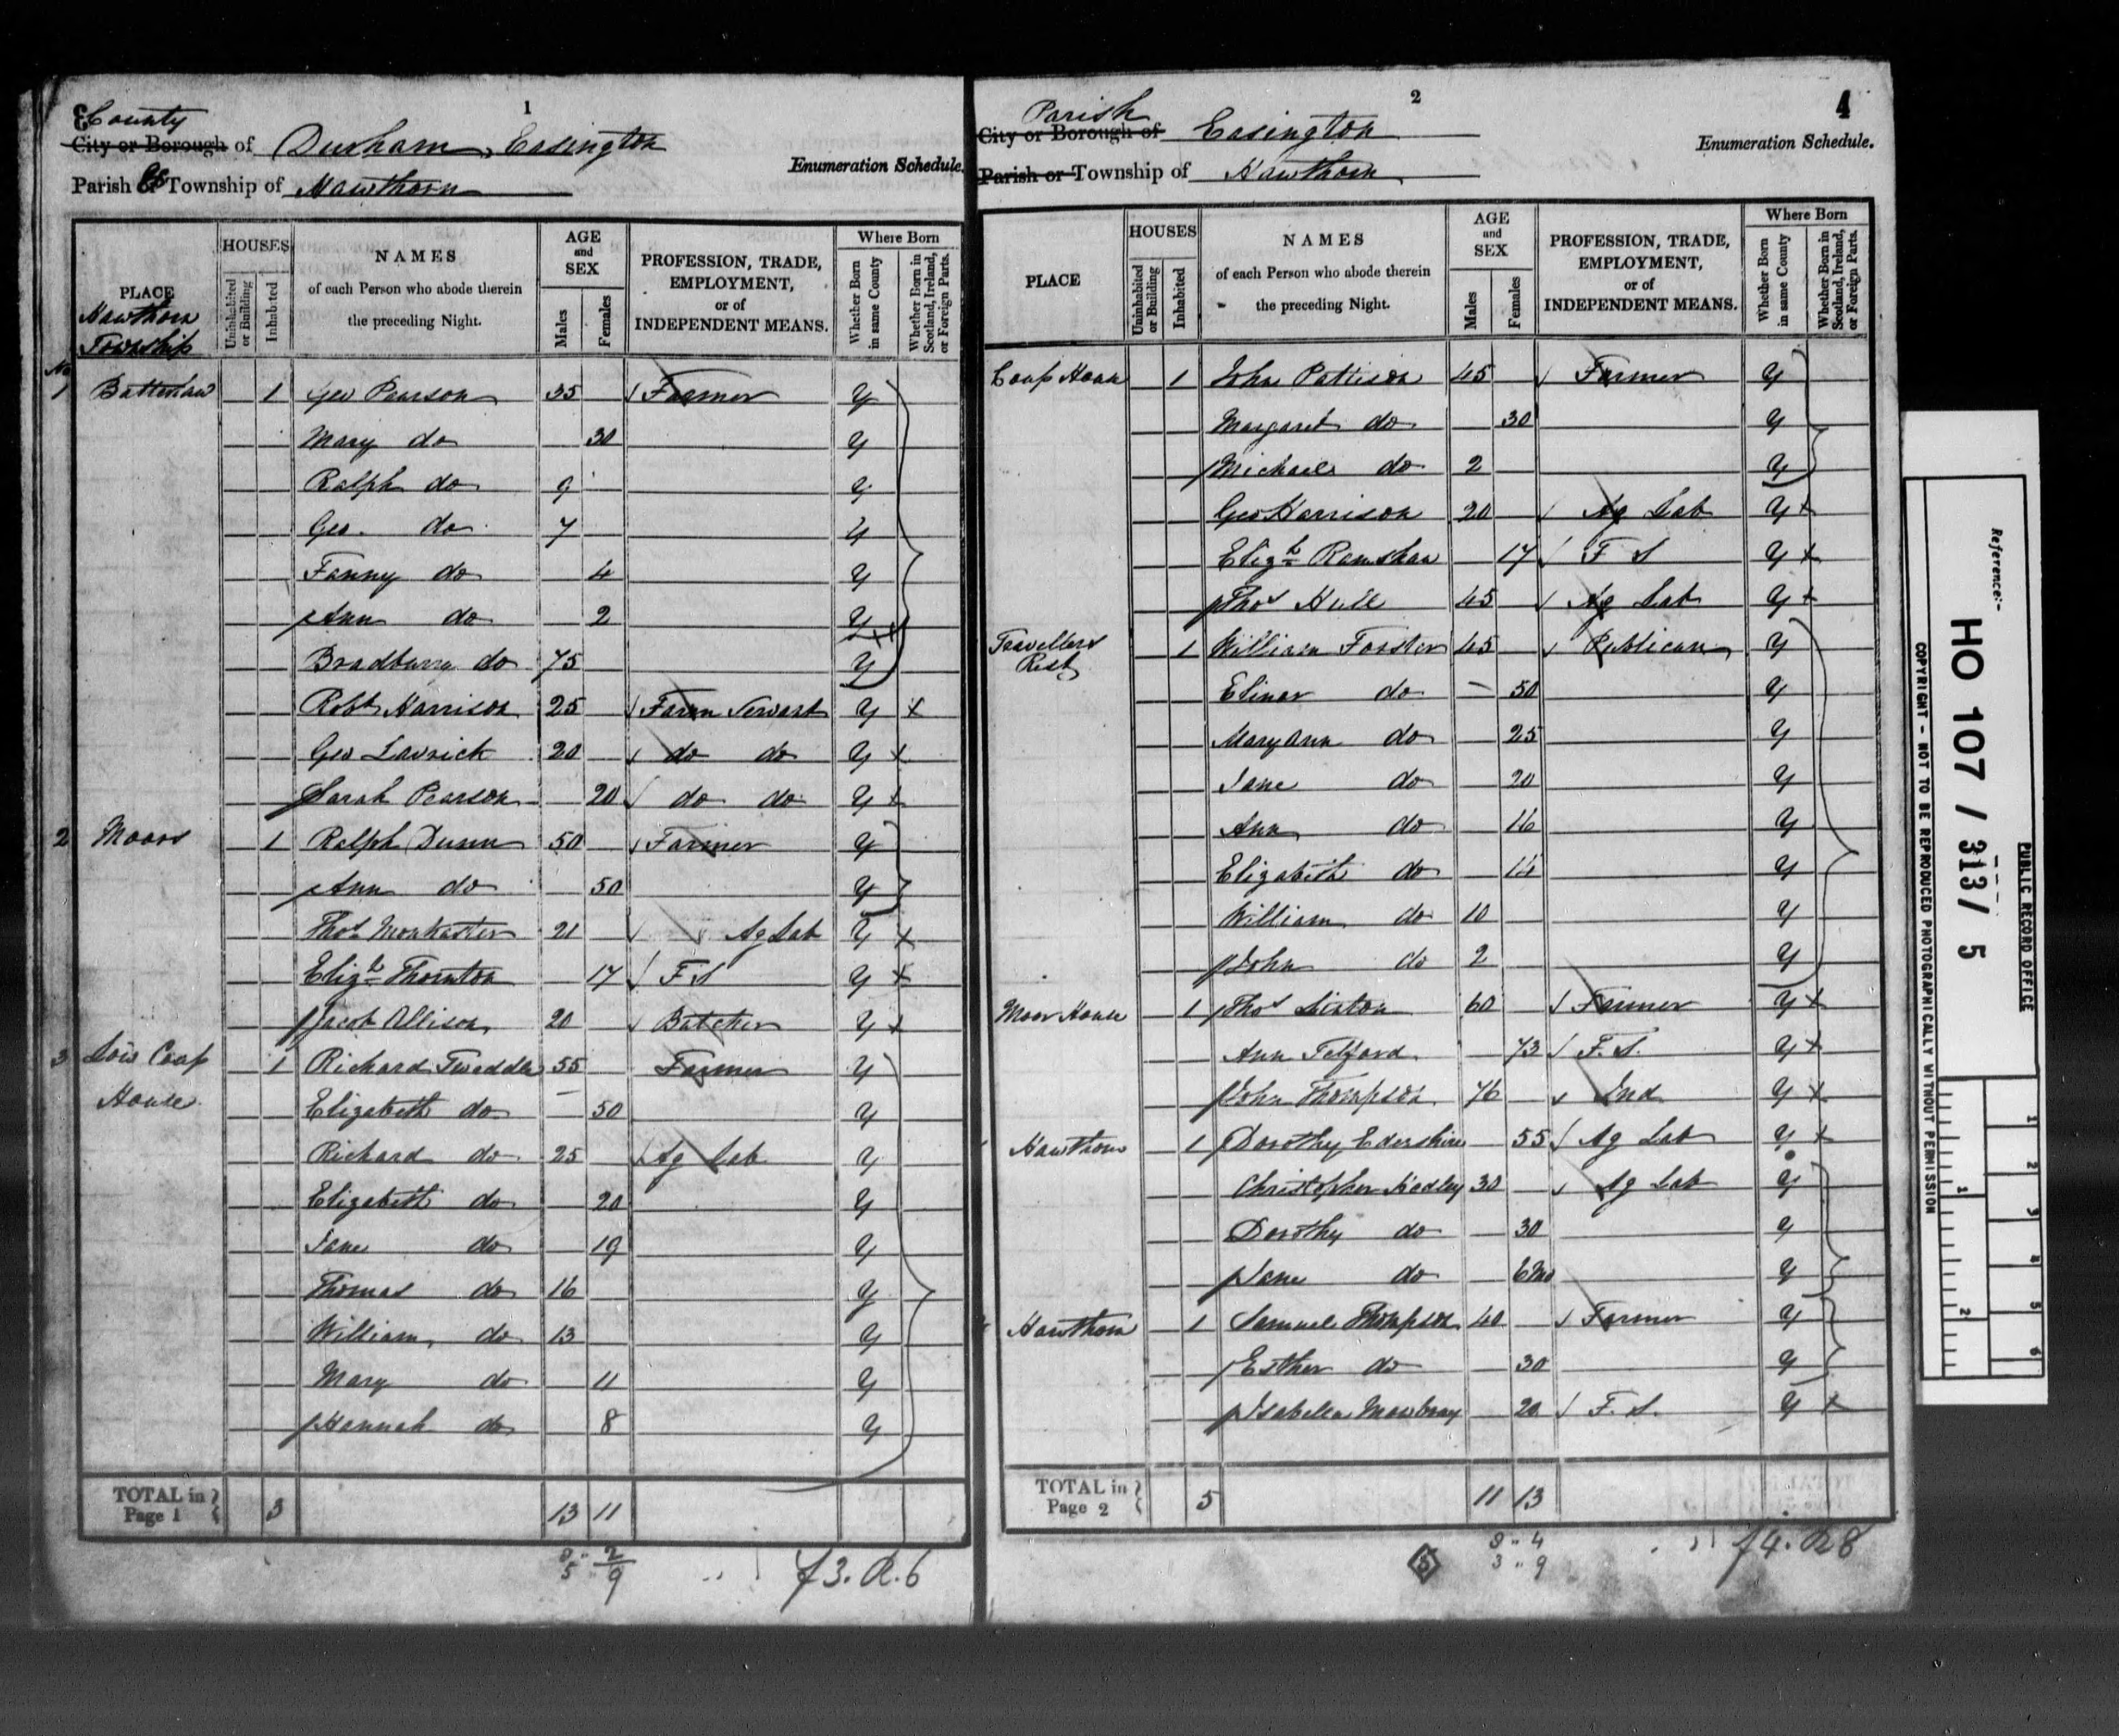 County
1
City or Borough of Durham, Easington
Enumeration Schedule.
Parish or Township of Hawthorn
PLACE
HOUSES
Uninhabited or Building
Inhabited
NAMES
of each Person who abode therein
the preceding Night.
AGE
and
SEX
Males
Females
PROFESSION, TRADE,
EMPLOYMENT,
or of
INDEPENDENT MEANS.
Where Born
Whether Born in same County
Whether Born in Scotland, Ireland, or Foreign Parts.
Hawthorn
Township
No
1 1 Geo Pearson 35 Farmer Y
Mary do 30 Y
Ralph do 9 Y
Geo. do 7 Y
Fanny do 4 Y
Ann do 2 Y
Bradburry do 75 Y
Robt Harrison 25 Farm Servant Y
Geo 20 do do Y
Sarah Pearson 20 do do Y
2 Moors 1 Ralph Dunn 50 Farmer Y
Ann do 50 Y
Thos 21 Ag Lab Y
Elizh Thornton 17 F S Y
Jacob Allison 20 Butcher Y
3 Coop 1 Richard Tweddle 55 Farmer Y
House Elizabeth do 50 Y
Richard do 25 Ag Lab Y
Elizabeth do 20 Y
Jane do 19 Y
Thomas do 16 Y
William do 13 Y
Mary do 11 Y
Hannah do 8 Y
TOTAL in
Page 1
3 13 11
2
5 9
f3. R.6
Parish
2
4
City or Borough of Easington
Enumeration Schedule.
Parish or Township of Hawthorn
PLACE
HOUSES
Uninhabited or Building
Inhabited
NAMES
of each Person who abode therein
the preceding Night.
AGE
and
SEX
Males
Females
PROFESSION, TRADE,
EMPLOYMENT,
or of
INDEPENDENT MEANS.
Where Born
Whether Born in same County
Whether Born in Scotland, Ireland, or Foreign Parts.
Coop House 1 John Pattison 45 Farmer Y
Margaret do 30 Y
Michael do 2 Y
Geo Harrison 20 Ag Lab Y
Elizh Ramshaw 17 F S Y
Thos Hull 45 Ag Lab Y
Travellers 1 William Forster 45 Publican Y
Rest Elinor do 50 Y
Mary Ann do 25 Y
Jane do 20 Y
Ann do 16 Y
Elizabeth do 14 Y
William do 10 Y
John do 2 Y
Moor House 1 Thos 60 Farmer Y
Ann Telford 73 F. S. Y
John Thompson 76 Ind Y
Hawthorn 1 Dorothy 55 Ag Lab Y
Christopher Hedley 30 Ag Lab Y
Dorothy do 30 Y
Jane do 6 Mo Y
Hawthorn 1 Samuel Thompson 40 Farmer Y
Esther do 30 Y
Isabella Mowbray 20 F. S. Y
TOTAL in
Page 2
5 11 13
8 4
3 9
f4. R8
Reference:-
HO 107 / 313 / 5
PUBLIC RECORD OFFICE
COPYRIGHT - NOT TO BE REPRODUCED PHOTOGRAPHICALLY WITHOUT PERMISSION
1
2
1 2 3 4 5 6